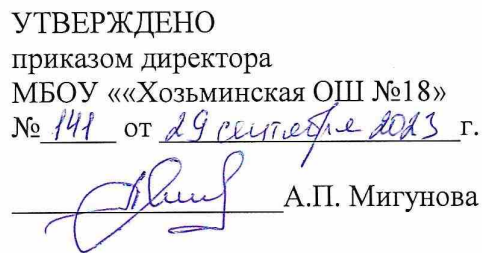 УТВЕРЖДЕНО
приказом директора
МБОУ ««Хозьминская ОШ №18»
№ 141 от 29 сентября 2023 г.
А.П. Мигунова